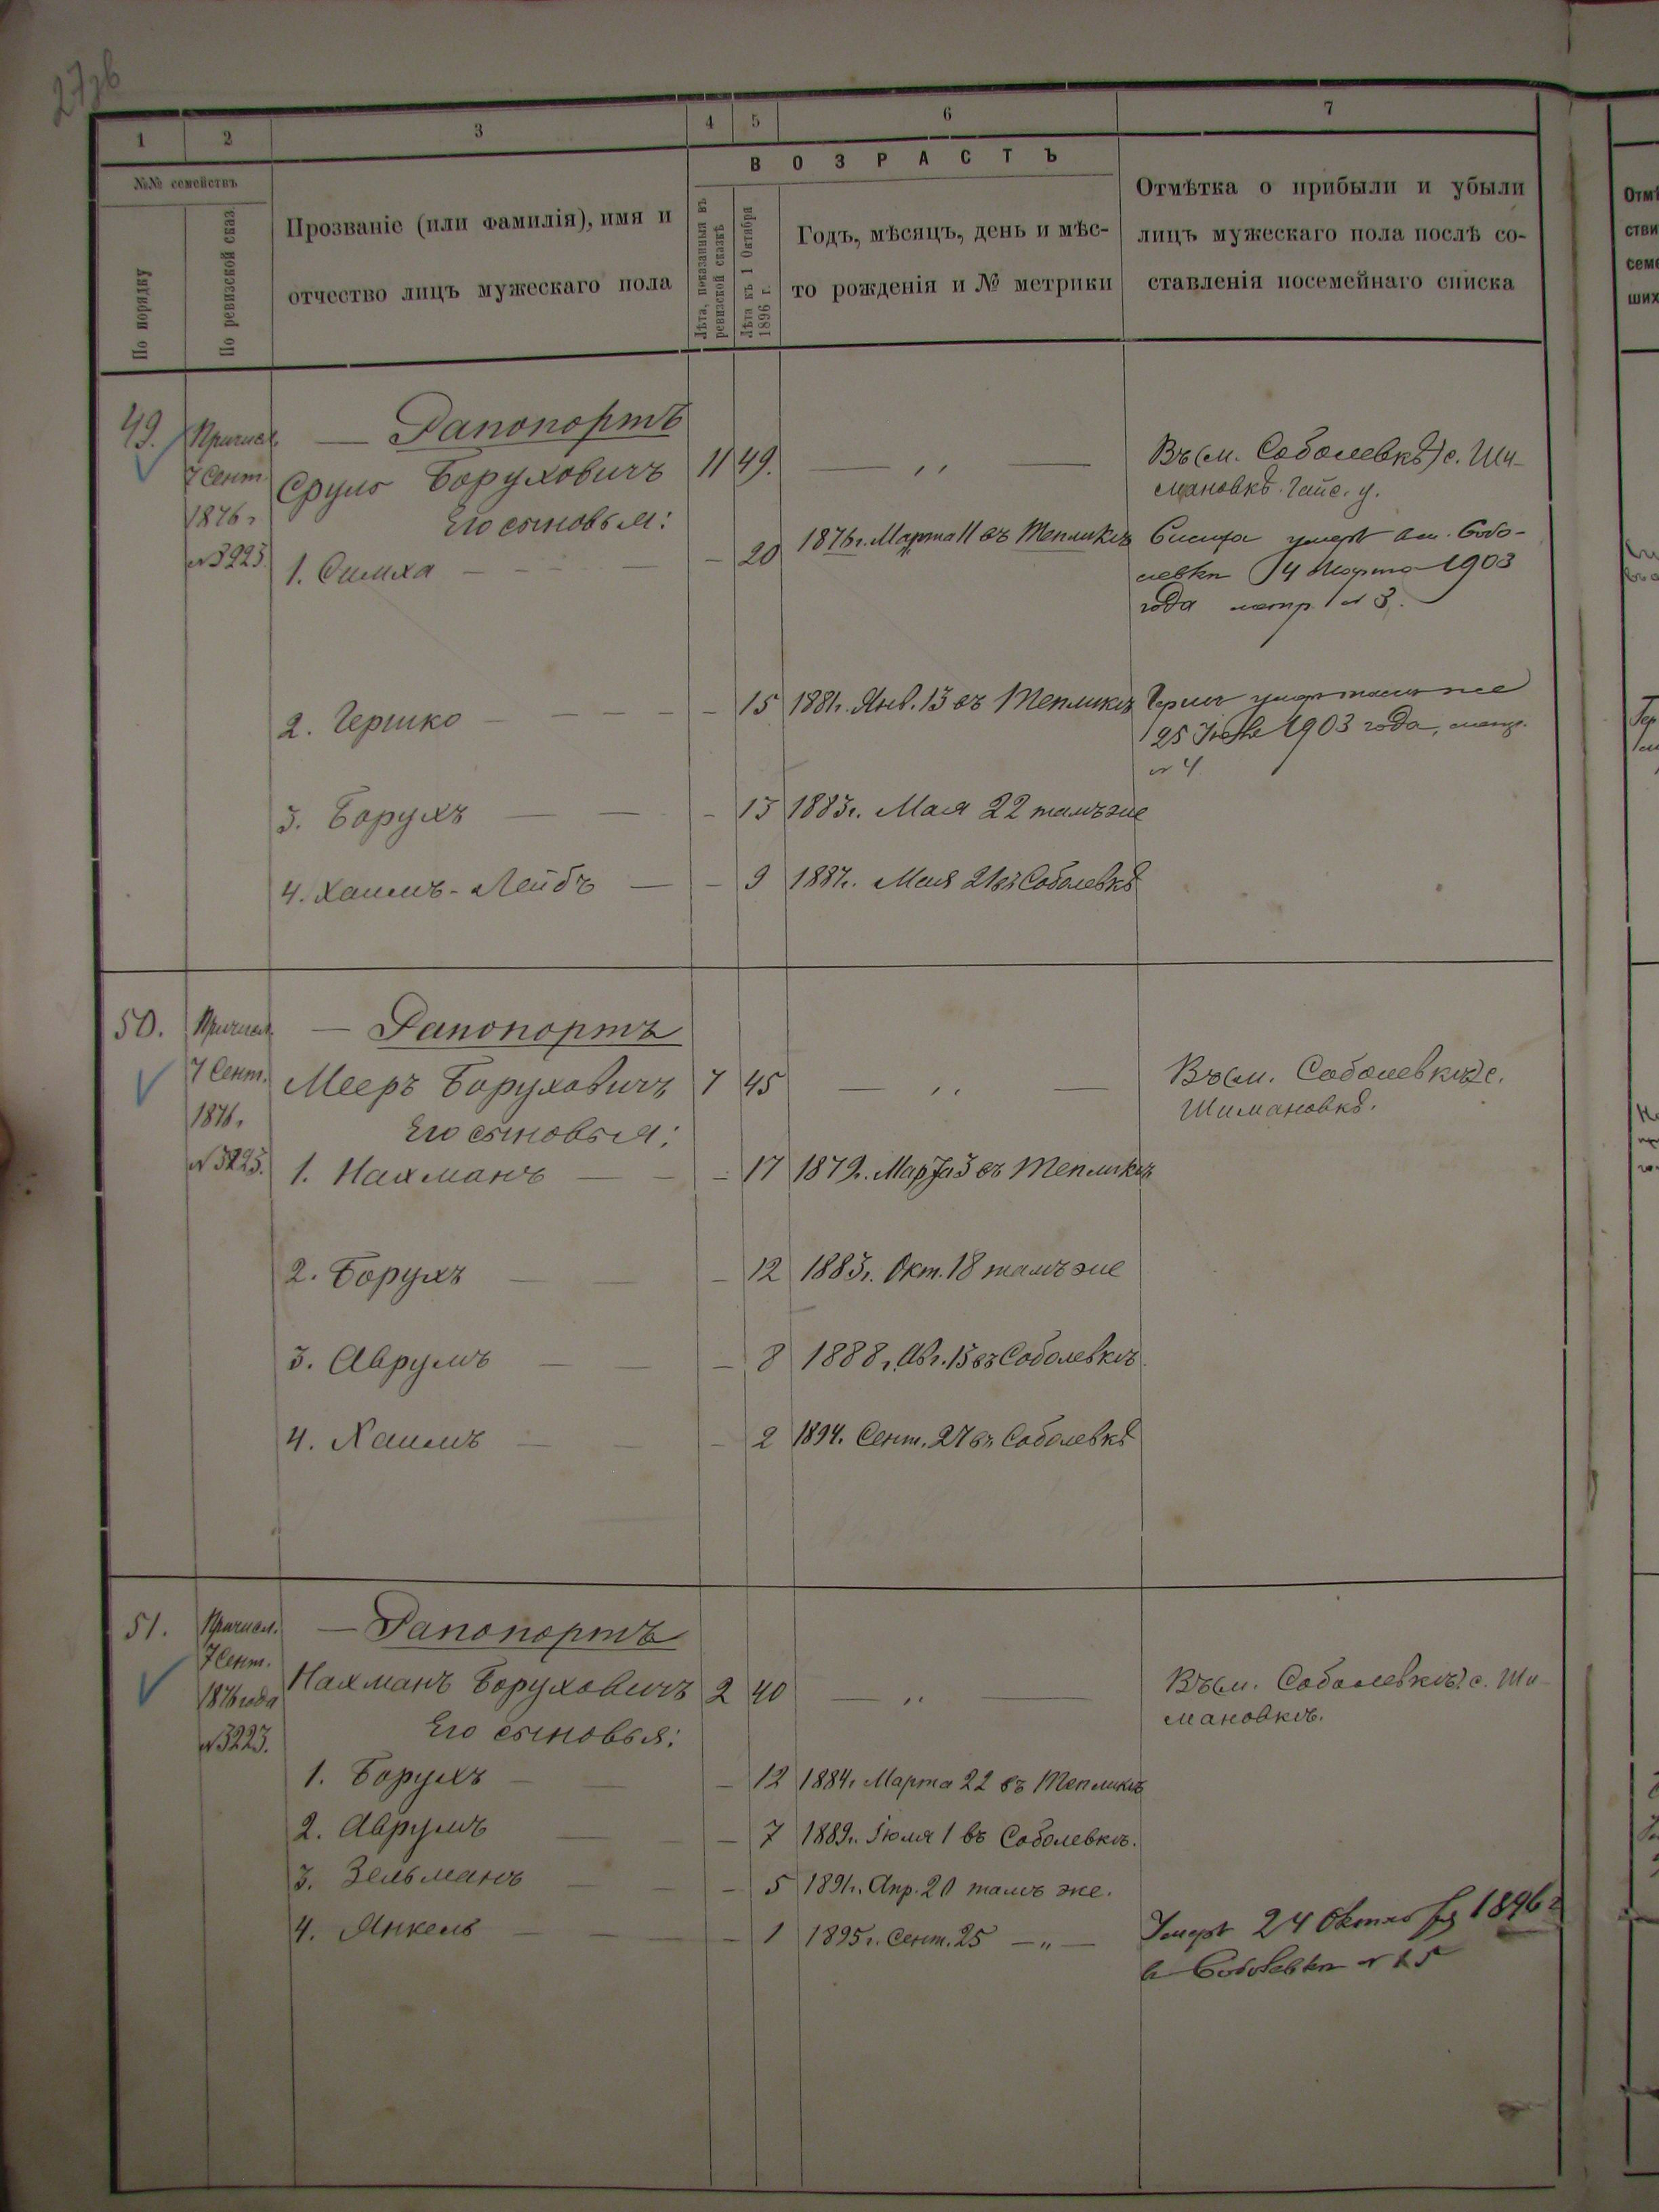 1 2 3 4 5 6 7
№№ семействъ
По порядку
По ревизской сказ.
Прозваніе (или фамилія), имя и
отчество лицъ мужескаго пола
ВОЗРАСТЪ
Лѣта, показанныя въ
ревизской сказкѣ
Лѣта къ 1 Октября
1896 г.
Годъ, мѣсяцъ, день и мѣс-
то рожденія и № метрики
Отмѣтка о прибыли и убыли
лицъ мужескаго пола послѣ со-
ставленія посемейнаго списка
49. Причисл. — Рапопортъ
7 Сент. Сруль Боруховичъ 11 49. — „ — Въ (м. Соболевкѣ) с. Ши-
мановкѣ. Гайс. у.
1876 г. Его сыновья:
№ 3223. 1. Симха — 20 1876 г. Марта 11 въ Тепликѣ Симха умеръ в м. Собо-
левкѣ 14 Марта 1903
года метр. № 3.
2. Гершко — 15 1881 г. Янв. 13 въ Тепликѣ Герш умер тамъ же
25 1903 года, метр.
№ 4
3. Борухъ — 13 1883 г. Мая 22 тамъ же
4. Хаимъ-Лейбъ — 9 1887 г. Мая 21 въ Соболевкѣ
50. Причисл. — Рапопортъ
7 Сент. Мееръ Боруховичъ 7 45 — „ — Въ (м. Соболевкѣ) с.
Шимановкѣ.
1876 г. Его сыновья:
№ 3223. 1. Нахманъ — 17 1879 г. Марта 3 въ Тепликѣ
2. Борухъ — 12 1883 г. Окт. 18 тамъ же
3. Аврумъ — 8 1888 г. Авг. 15 въ Соболевкѣ
4. Хаимъ — 2 1894. Сент. 27 въ Соболевкѣ
51. Причисл. — Рапопортъ
7 Сент.
1876 года Нахманъ Боруховичъ 2 40 — „ — Въ (м. Соболевкѣ) с. Ши-
мановкѣ.
№ 3223. Его сыновья:
1. Борухъ — 12 1884 г. Марта 22 въ Тепликѣ
2. Аврумъ — 7 1889 г. Іюля 1 въ Соболевкѣ.
3. Зельманъ — 5 1891 г. Апр. 20 тамъ же.
4. Янкель — 1 1895 г. Сент. 25 — „ — Умеръ 24 Октября 1896 г
в Соболевкѣ